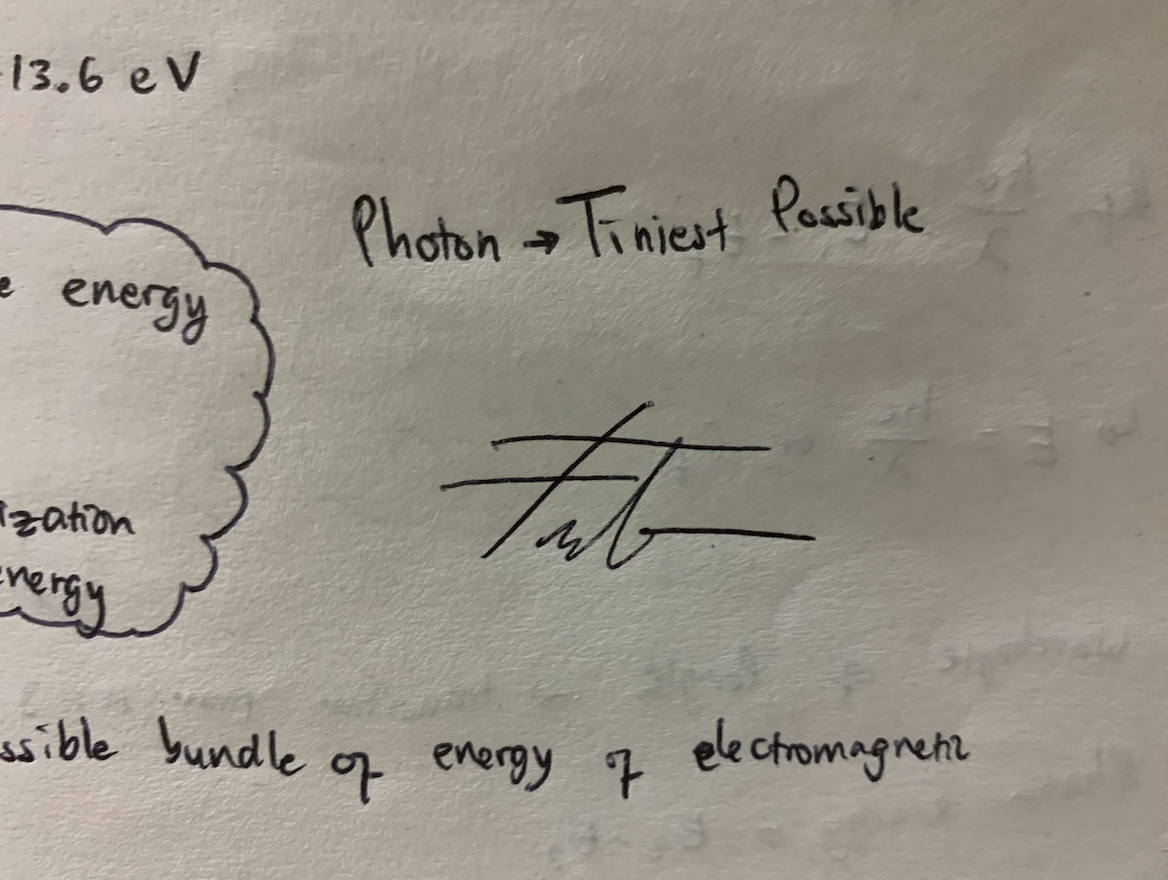 13.6 eV
Photon → Tiniest Possible
energy
ization
energy
ssible bundle of energy of electromagnetic